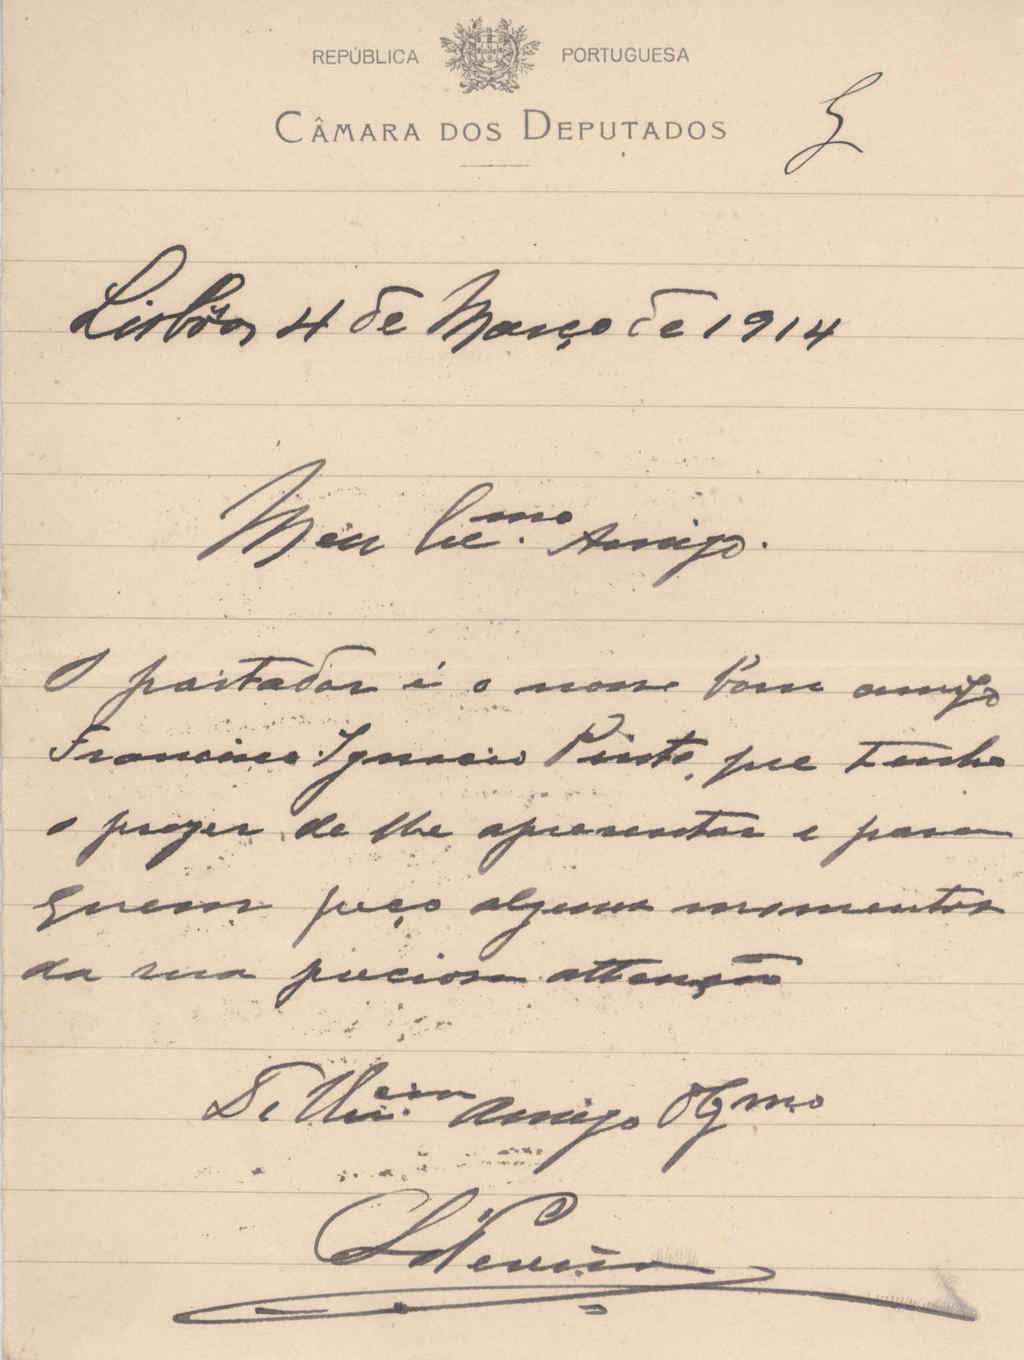 REPÚBLICA PORTUGUESA
CÂMARA DOS DEPUTADOS
Lisbôa, 4 de Março de 1914
Meu Amigo.
O portador é o nosso bom amigo
Francisco Ignacio Pinto, que tenho
o prazer de lhe apresentar e para
quem peço alguns momentos
da sua preciosa attenção
De Amigo Obgmo